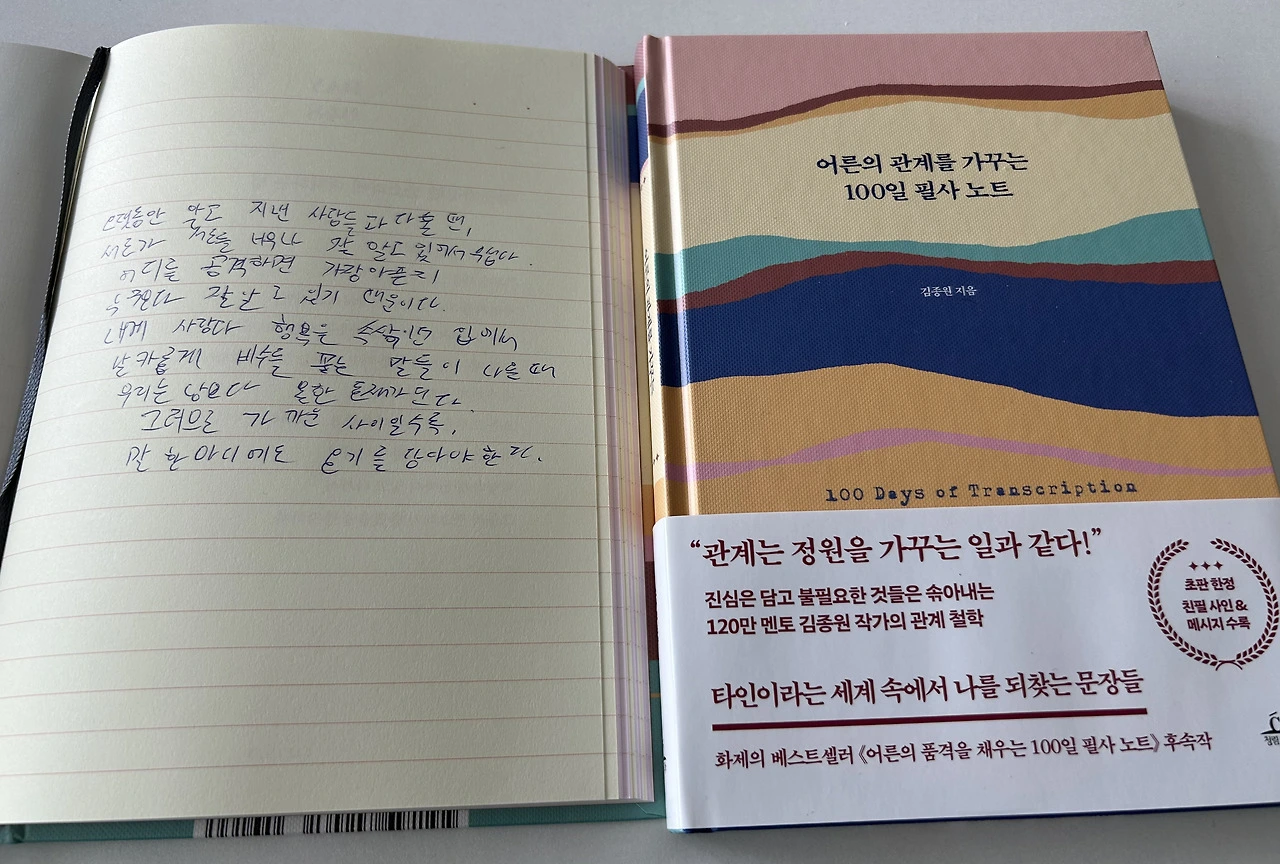 오랫동안 알고 지낸 사람들과 다툴 땐,
서로가 서로를 너무나 잘 알고 있어서 무섭다.
어디를 공격하면 가장 아픈지
누구보다 잘 알고 있기 때문이다.
내게 사랑과 행복을 속삭이던 입에서
날카롭게 비수를 품는 말들이 나올 때
우리는 남보다 못한 존재가 된다.
그러므로 가까운 사이일수록,
말 한마디에도 온기를 담아야 한다.
어른의 관계를 가꾸는
100일 필사 노트
김종원 지음
100 Days of Transcription
“관계는 정원을 가꾸는 일과 같다!”
진심은 담고 불필요한 것들은 솎아내는
120만 멘토 김종원 작가의 관계 철학
초판 한정
친필 사인 &
메시지 수록
타인이라는 세계 속에서 나를 되찾는 문장들
화제의 베스트셀러 《어른의 품격을 채우는 100일 필사 노트》 후속작